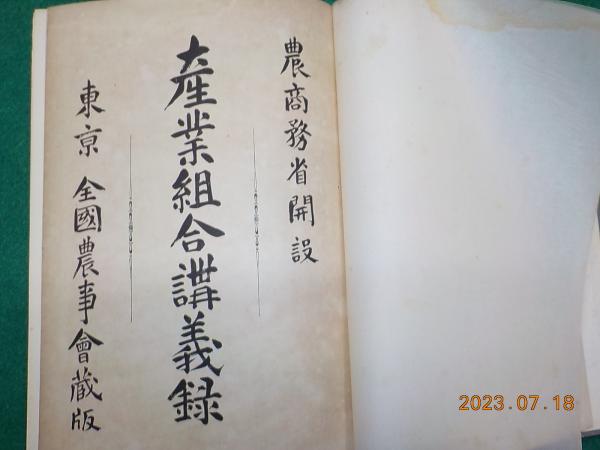 農商務省開設
産業組合講義録
東京 全國農事會蔵版
2023.07.18